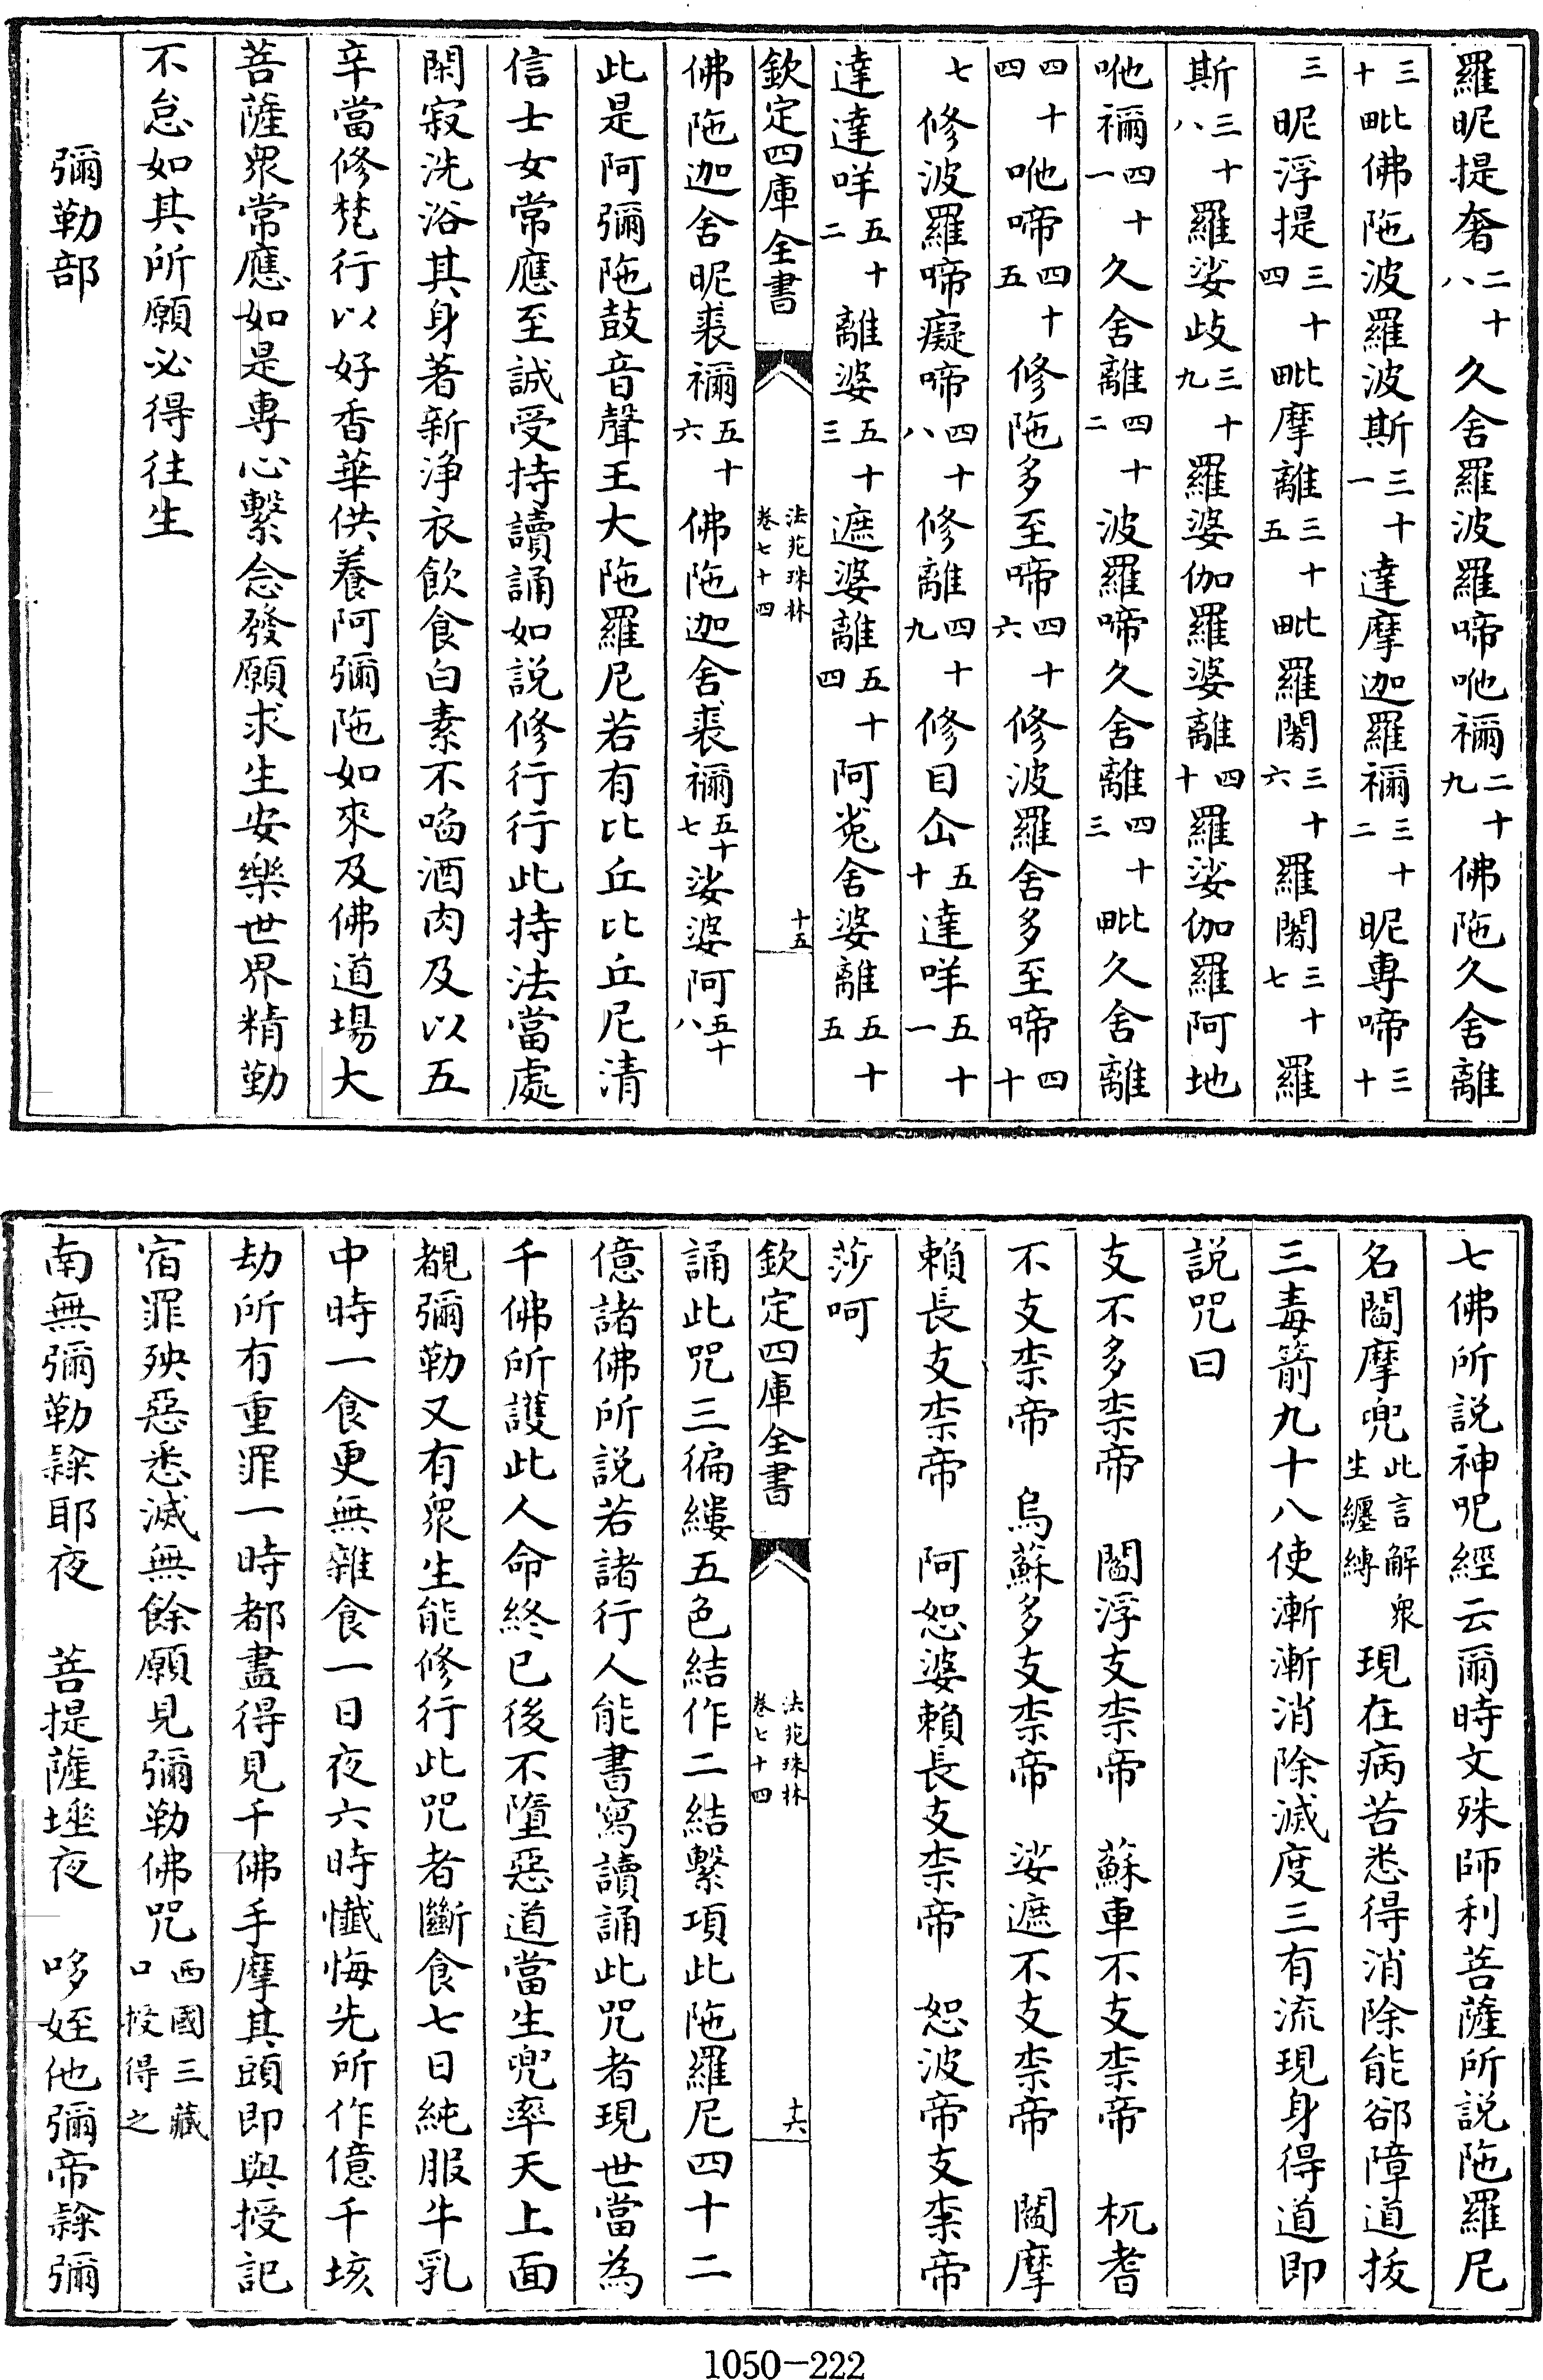 羅昵提奢二十八久舍羅波羅啼吔禰二十九佛陁久舍離
三十毗佛陁波羅波斯三十一達摩迦羅禰三十二昵專啼三十
三昵浮提三十四毗摩離三十五毗羅闍三十六羅闍三十七羅
斯三十八羅娑歧九三十羅娑伽羅婆離四十羅娑伽羅阿地
吔禰四十一久舍離四十二波羅啼久舍離四十三毗久舍離
四十四吔啼四十五修陁多至啼四十六修波羅舍多至啼四十
七修波羅啼癡啼四十八修離四十九修目佱五十達咩五十一
達達咩五十二離婆五十三遮婆離五十四阿㝹舍婆離五十五
欽定四庫全書 法苑珠林 卷七十四 十五
佛陁迦舍昵裘禰五十六佛陁迦舍裘禰五十七娑婆阿五十八
此是阿彌陁鼓音聲王大陁羅尼若有比丘比丘尼清
信士女常應至誠受持讀誦如說修行行此持法當處
閑寂洗浴其身著新淨衣飲食白素不啗酒肉及以五
辛當修梵行以好香華供養阿彌陁如來及佛道場大
菩薩衆常應如是專心繫念發願求生安樂世界精勤
不怠如其所願必得往生
彌勒部
七佛所說神呪經云爾時文殊師利菩薩所說陁羅尼
名閻摩兜此言解衆生纒縛現在病苦悉得消除能卻障道拔
三毒箭九十八使漸漸消除滅度三有流現身得道即
說咒曰
支不多柰帝 閻浮支柰帝 蘇車不支柰帝 杌耆
不支柰帝 烏蘇多支柰帝 娑遮不支柰帝 閻摩
賴長支柰帝 阿恕婆賴長支柰帝 恕波帝支柰帝
莎呵
欽定四庫全書 法苑珠林 卷七十四 十六
誦此咒三徧縷五色結作二結繫項此陁羅尼四十二
億諸佛所說若諸行人能書寫讀誦此咒者現世當為
千佛所護此人命終已後不墮惡道當生兜率天上面
覩彌勒又有衆生能修行此咒者斷食七日純服牛乳
中時一食更無雜食一日夜六時懺悔先所作億千垓
劫所有重罪一時都盡得見千佛手摩其頭即與授記
宿罪殃惡悉滅無餘願見彌勒佛咒西國三藏口授得之
南無彌勒隸耶夜 菩提薩埵夜 哆姪他彌帝隸彌
1050-222